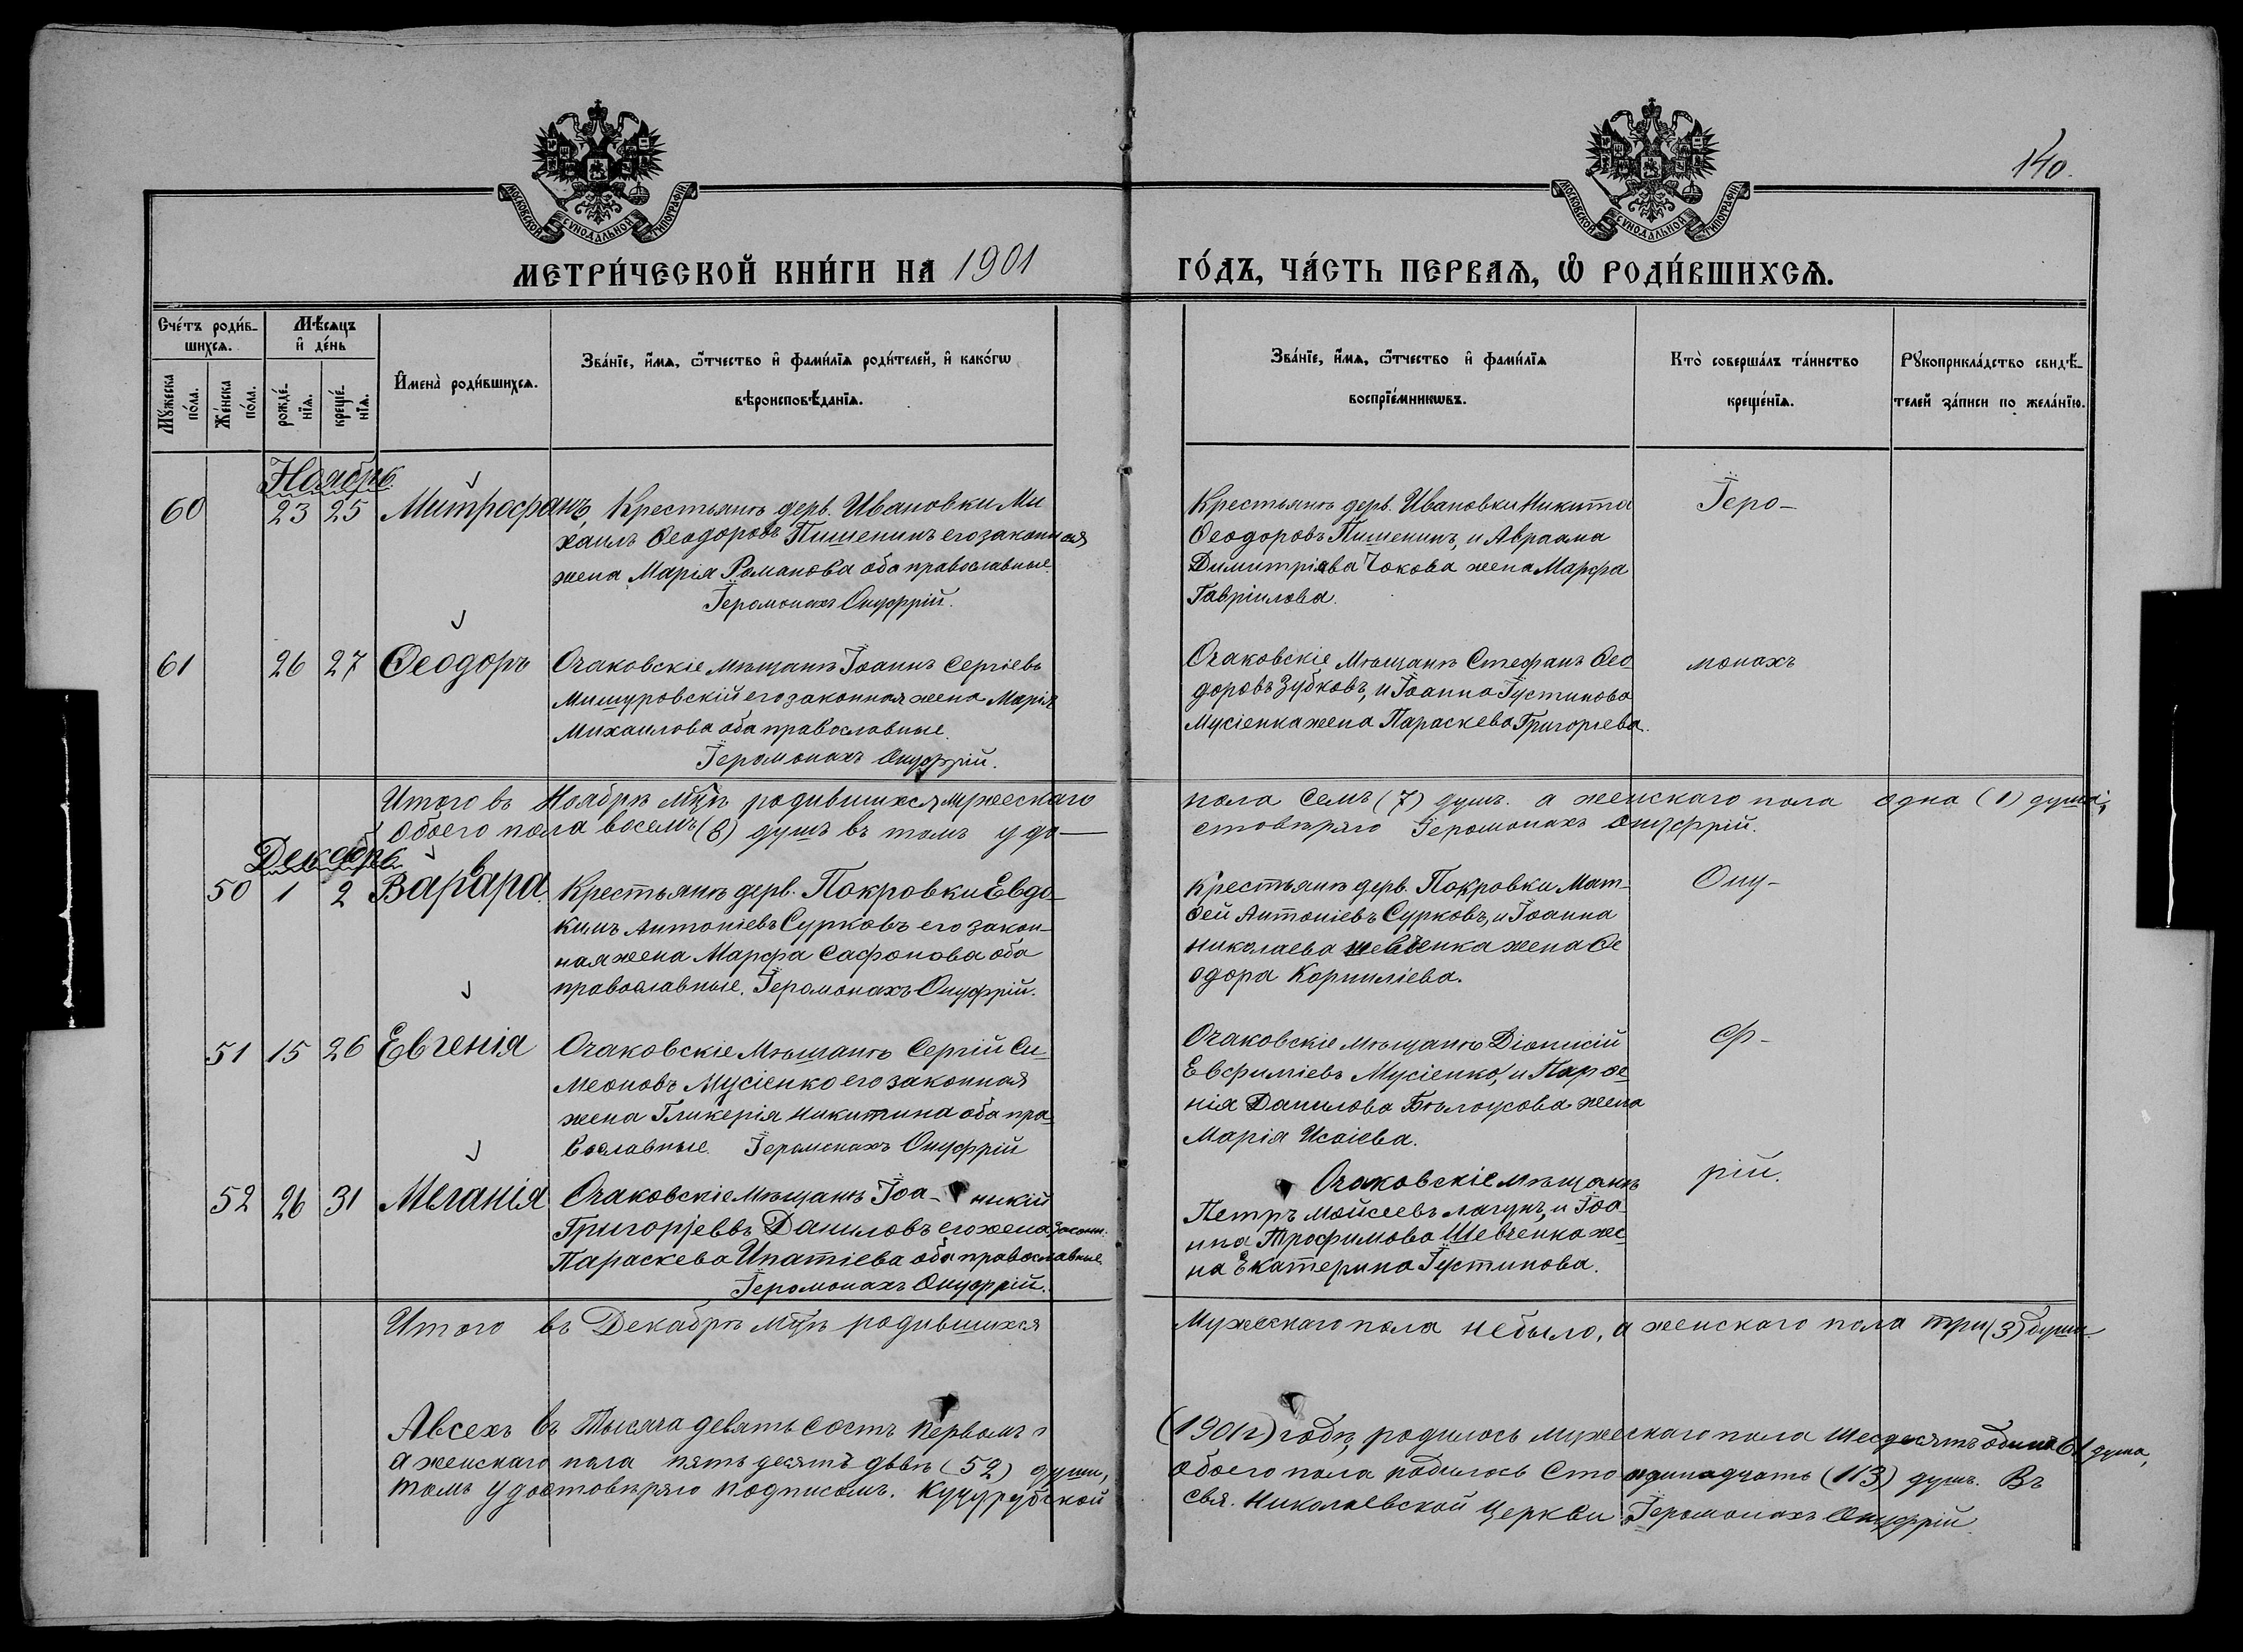 140.
МОСКОВСКОЙ СѴНОДАЛЬНОЙ ТИПОГРАФІИ
МОСКОВСКОЙ СѴНОДАЛЬНОЙ ТИПОГРАФІИ
МЕТРИ́ЧЕСКОЙ КНИ́ГИ НА 1901 ГО́ДЪ, ЧА́СТЬ ПЕРВАѦ, Ѡ҆ РОДИ́ВШИХСѦ.
Сче́тъ роди́в-
шихсѧ.
Мꙋжеска
по́ла.
Же́нска
по́ла.
Мѣ́сѧцъ
и҆ де́нь
рожде́-
нїѧ.
креще́-
нїѧ.
И҆мена̀ роди́вшихсѧ.
Зва́нїе, и҆́мѧ, ѻ҆́тчество и҆ фами́лїѧ роди́телей, и҆ како́гѡ
вѣроисповѣ́данїѧ.
Зва́нїе, и҆́мѧ, ѻ҆́тчество и҆ фами́лїѧ
воспрїе́мникѡвъ.
Кто̀ соверша́лъ та́инство
креще́нїѧ.
Рꙋкоприкла́дство свидѣ́-
телей за́писи по жела́нїю.
Ноябрь
60 23 25 Митрофанъ, Крестьянъ дерв. Ивановки Ми
хаилъ Ѳеодоровъ Пишенинъ его законная
жена Марія Романова оба православные.
Іеромонахъ Онуфрій.
Крестьянъ дерв. Ивановки Никита
Ѳеодоровъ Пишенинъ, и Авраама
Димитріева Чокова жена Марфа
Гавріилова.
Іеро-
61 26 27 Ѳеодоръ Очаковскіе мѣщанъ Іоаннъ Сергіевъ
Мишуровскій его законная жена Марія
Михаилова оба православные.
Іеромонахъ Онуфрій.
Очаковскіе мѣщанъ Стефанъ Ѳео-
доровъ Зубковъ, и Іоанна Іустинова
Мусіенка жена Параскева Григоріева.
монахъ
Итого въ Ноябрѣ м-цѣ родившихся мужескаго пола семъ (7) душъ. а женскаго пола одна (1) душа;
обоего пола восемъ (8) душъ въ томъ удо- стовѣряю Іеромонахъ Онуфрій.
Декабрь
50 1 2 Варвара. Крестьянъ дерв. Покровки Евдо-
кимъ Антоніевъ Сурковъ его закон-
ная жена Марфа Сафонова оба
православные. Іеромонахъ Онуфрій.
Крестьянъ дерв. Покровки Мат-
ѳей Антоніевъ Сурковъ, и Іоанна
Николаева Шевченка жена Ѳе
одора Корниліева.
Ону-
51 15 26 Евгенія Очаковскіе мѣщанъ Сергій Си-
меоновъ Мусіенко его законная
жена Гликерія Никитина оба пра-
вославные. Іеромонахъ Онуфрій
Очаковскіе мѣщанъ Діонисій
Евфиміевъ Мусіенко, и Парѳе-
нія Данилова Бѣлоусова жена
Марія Исаіева.
ф-
52 26 31 Меланія Очаковскіе мѣщанъ Іоа- никій
Григоріеввъ Даниловъ его жена законн.
Параскева Ипатіева оба православные.
Іеромонахъ Онуфрій.
Очаковскіе мѣщанъ
Петръ Мойсеевъ Лагунъ, и Іоа-
нна Трофимова Шевченка же-
на Екатерина Іустинова.
рій.
Итого въ Декабрѣ м-цѣ родившихся Мужескаго пола небыло, а женскаго пола три (3) души.
Авсехъ въ Тысяча девятьсостъ первомъ (1901г) годѣ, родилось мужескаго пола шесдесятъ одина 61 душа,
а женскаго пола пятьдесятъ двѣ (52) души, обоего пола родилось Сто одинадцать (113) душъ. Въ
томъ удостовѣряю подписомъ. Куцурубской Свя. Николаевской Церкви Іеромонахъ Онуфрій.